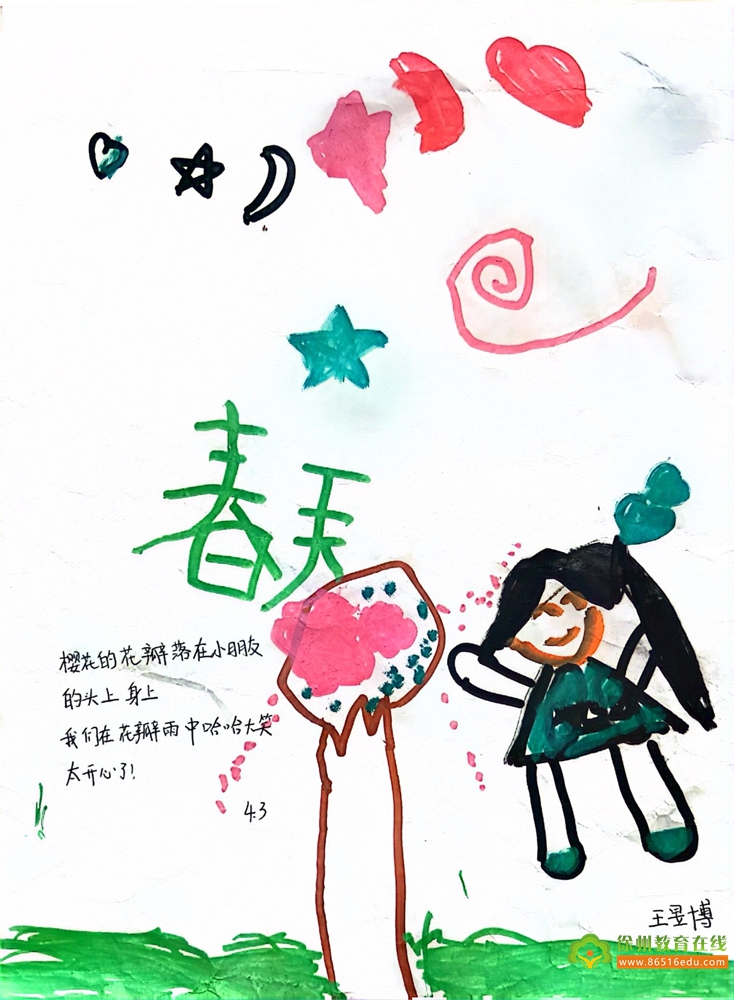 春天
樱花的花瓣落在小朋友
的头上 身上
我们在花瓣雨中哈哈大笑
太开心了!
4.3
王昱博
徐州教育在线
www.86516edu.com